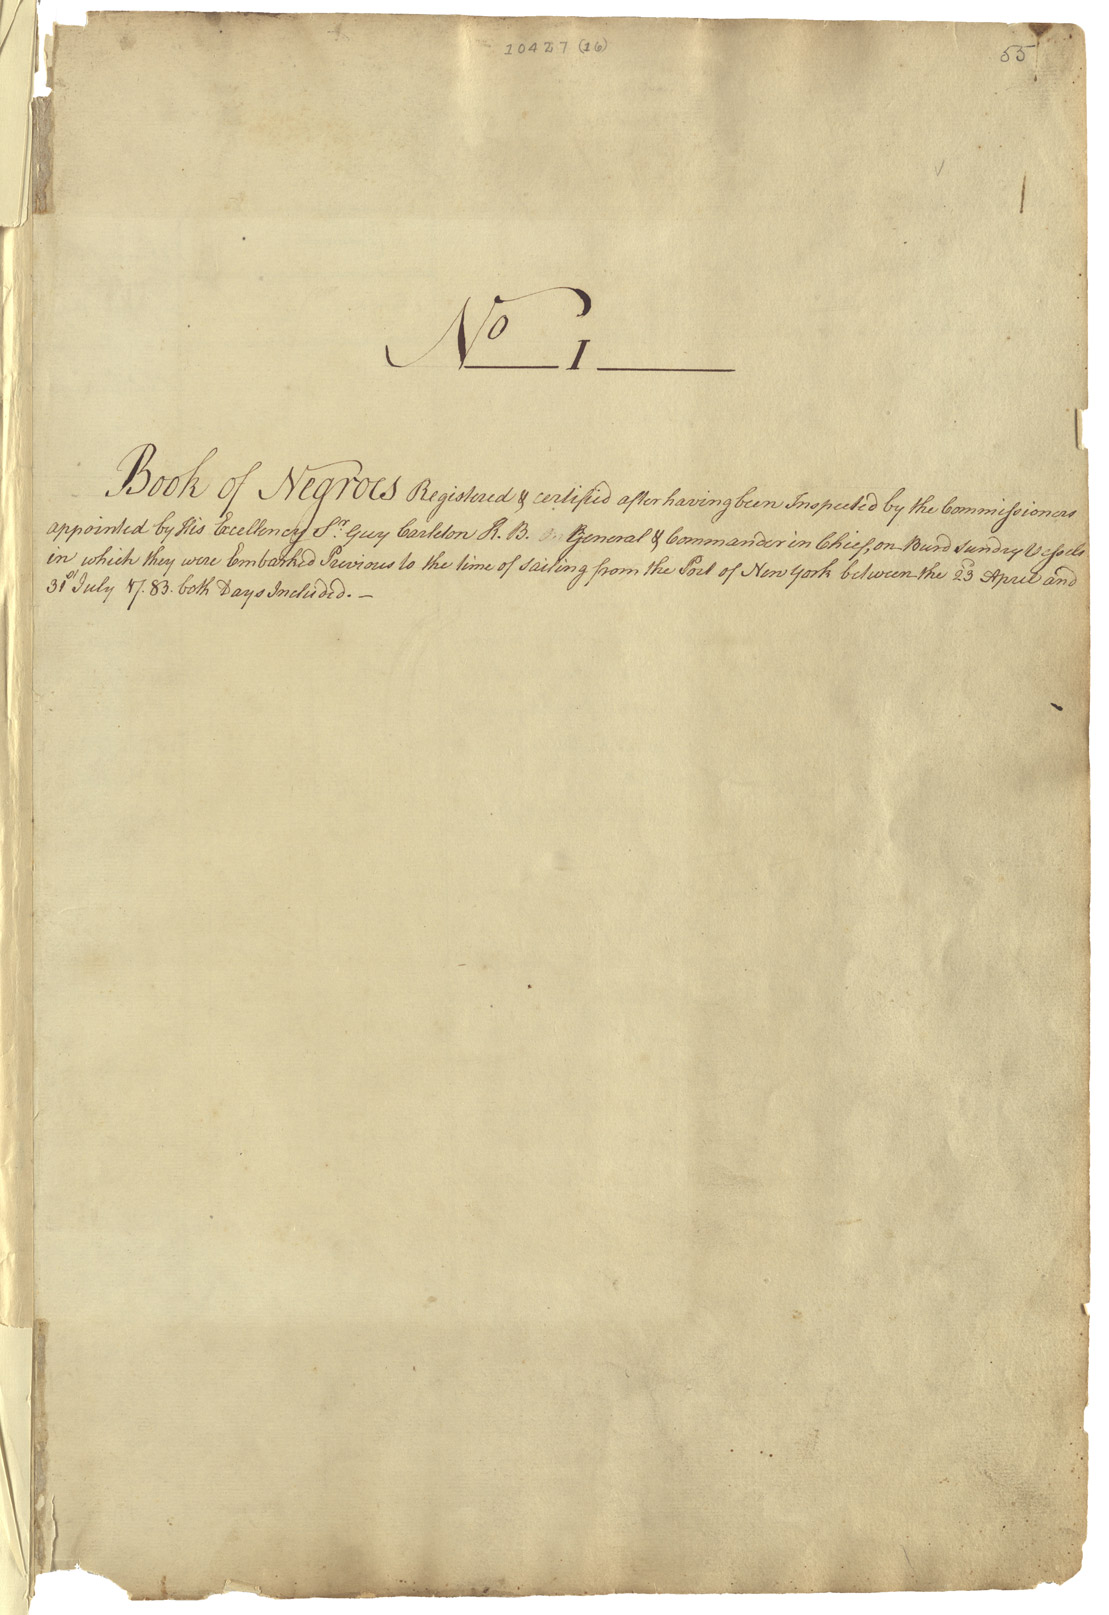 10427 (16)
55
No 1
Book of Negroes Registered & certified after having been Inspected by the Commissioners
appointed by His Excellency Sr. Guy Carleton K. B. General & Commander in Chief, on Burd Sundry Vessels
in which they were Embarked Previous to the time of sailing from the Port of New York between the 23d April and
31st July 1783. both Days Included. —